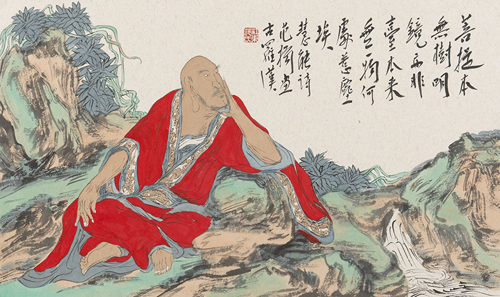 菩提本
無樹明
鏡亦非
臺本来
無一物何
處惹塵
埃
慧能詩
范揚畫
古羅漢